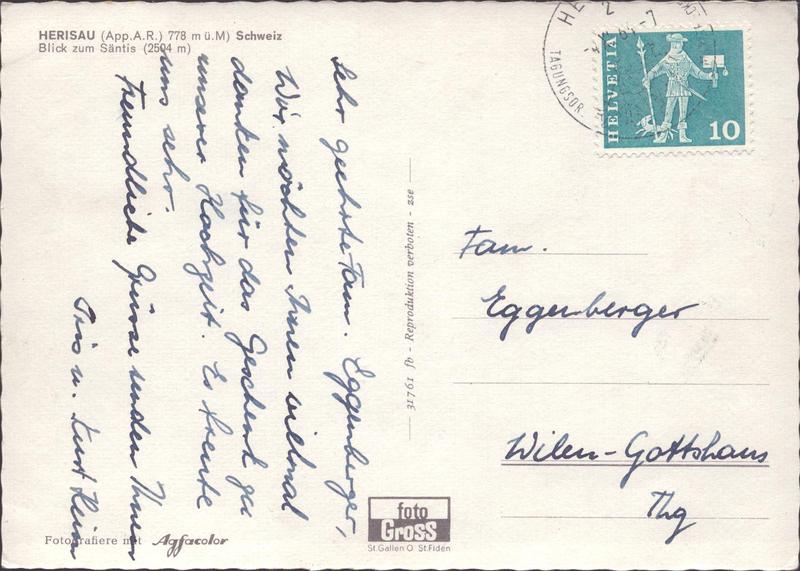 HERISAU (App.A.R.) 778 m ü.M) Schweiz
Blick zum Säntis (2504 m)
Sehr geehrte Fam. Eggenberger,
Wir möchten Ihnen vielmal
danken für das Geschenk zu
unserer Hochzeit. Es freute
uns sehr.
Freundliche Grüsse senden Ihnen
u. Kurt
31761 fb - Reproduktion verboten - zse
HELVETIA
10
HE
2
64-7
TAGUNGSOR
Fam.
Eggenberger
Wilen-Gottshaus
Thg
Fotografiere mit Agfacolor
foto
Gross
St.Gallen O St.Fiden